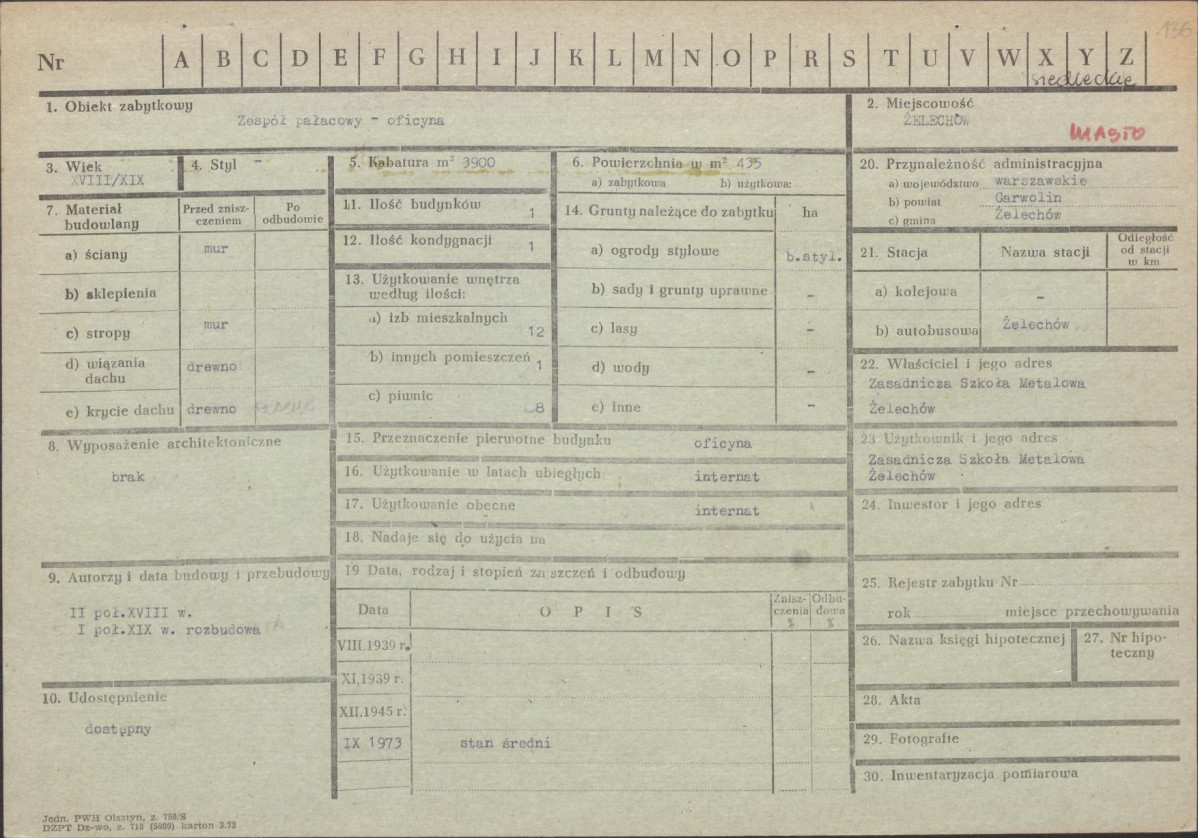 136
Nr A B C D E F G H I J K L M N O P R S T U V W X Y Z
siedleckie
1. Obiekt zabytkowy
Zespół pałacowy - oficyna
2. Miejscowość
ŻELECHÓW
MIASTO
3. Wiek
XVIII/XIX
4. Styl -
5. Kabatura m² 3900
6. Powierzchnia w m² 435
a) zabytkowa b) użytkowa:
20. Przynależność administracyjna
a) województwo warszawskie
b) powiat Garwolin
c) gmina Żelechów
7. Materiał budowlany
Przed znisz-
czeniem
Po
odbudowie
a) ściany mur
b) sklepienia
c) stropy mur
d) wiązania
dachu drewno
e) krycie dachu drewno
11. Ilość budynków 1
12. Ilość kondygnacji 1
13. Użytkowanie wnętrza
według ilości:
a) izb mieszkalnych 12
b) innych pomieszczeń 1
c) piwnic 8
14. Grunty należące do zabytku ha
a) ogrody stylowe b.styl.
b) sady i grunty uprawne -
c) lasy -
d) wody -
e) inne -
21. Stacja Nazwa stacji
Odległość
od stacji
w km
a) kolejowa -
b) autobusowa Żelechów
22. Właściciel i jego adres
Zasadnicza Szkoła Metalowa
Żelechów
8. Wyposażenie architektoniczne
brak
15. Przeznaczenie pierwotne budynku oficyna
16. Użytkowanie w latach ubiegłych internat
17. Użytkowanie obecne internat
18. Nadaje się do użycia na
23 Użytkownik i jego adres
Zasadnicza Szkoła Metalowa
Żelechów
24. Inwestor i jego adres
9. Autorzy i data budowy i przebudowy
II poł.XVIII w.
I poł.XIX w. rozbudowa
19 Data, rodzaj i stopień zniszczeń i odbudowy
Data O P I S
Znisz-
czenia
%
Odbu-
dowa
%
VIII.1939 r.
XI,1939 r.
XII.1945 r.
IX 1973 stan średni
25. Rejestr zabytku Nr
rok miejsce przechowywania
26. Nazwa księgi hipotecznej
27. Nr hipo-
teczny
10. Udostępnienie
dostępny
28. Akta
29. Fotografie
30. Inwentaryzacja pomiarowa
Jedn. PWH Olsztyn, z. 756/S
DZPT Dz-wo, z. 718 (5000) karton 3.73